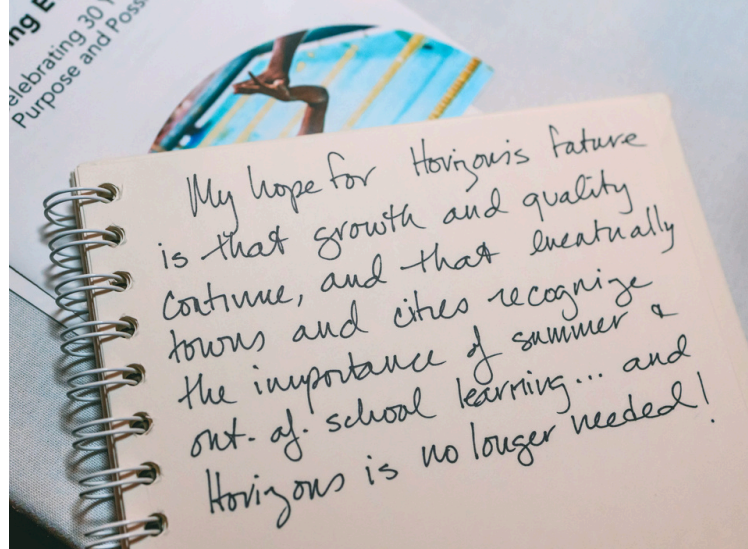 ng E
elebrating 30 y
Purpose and Poss
My hope for Horizons future
is that growth and quality
continue, and that eventually
towns and cities recognize
the importance of summer &
out-of-school learning... and
Horizons is no longer needed!